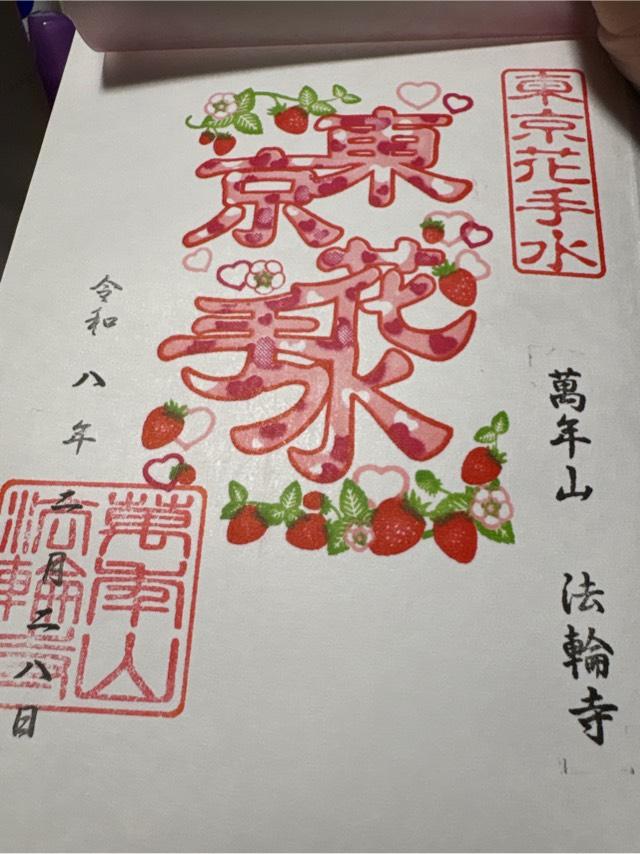 東京花手水
萬年山 法輪寺
東京花手水
令和八年二月二八日
萬年山
法輪寺